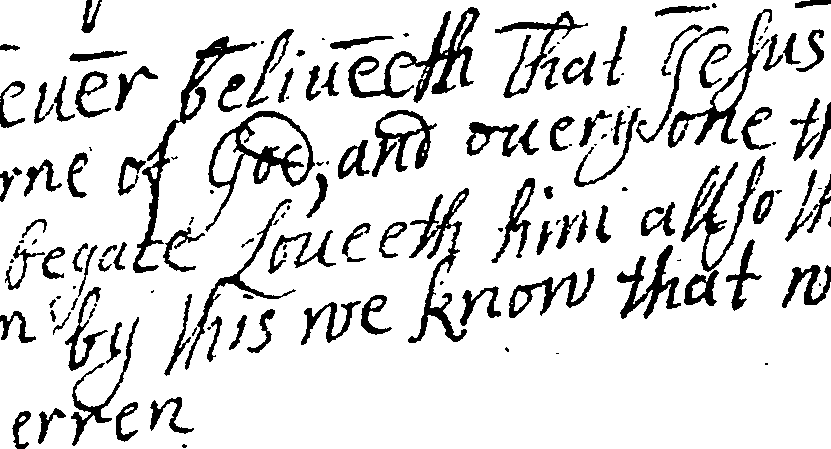 euer beliueeth that Jesus
rne of God, and ouery one th
begate Loueeth him allso th
n by this we know that w
erren